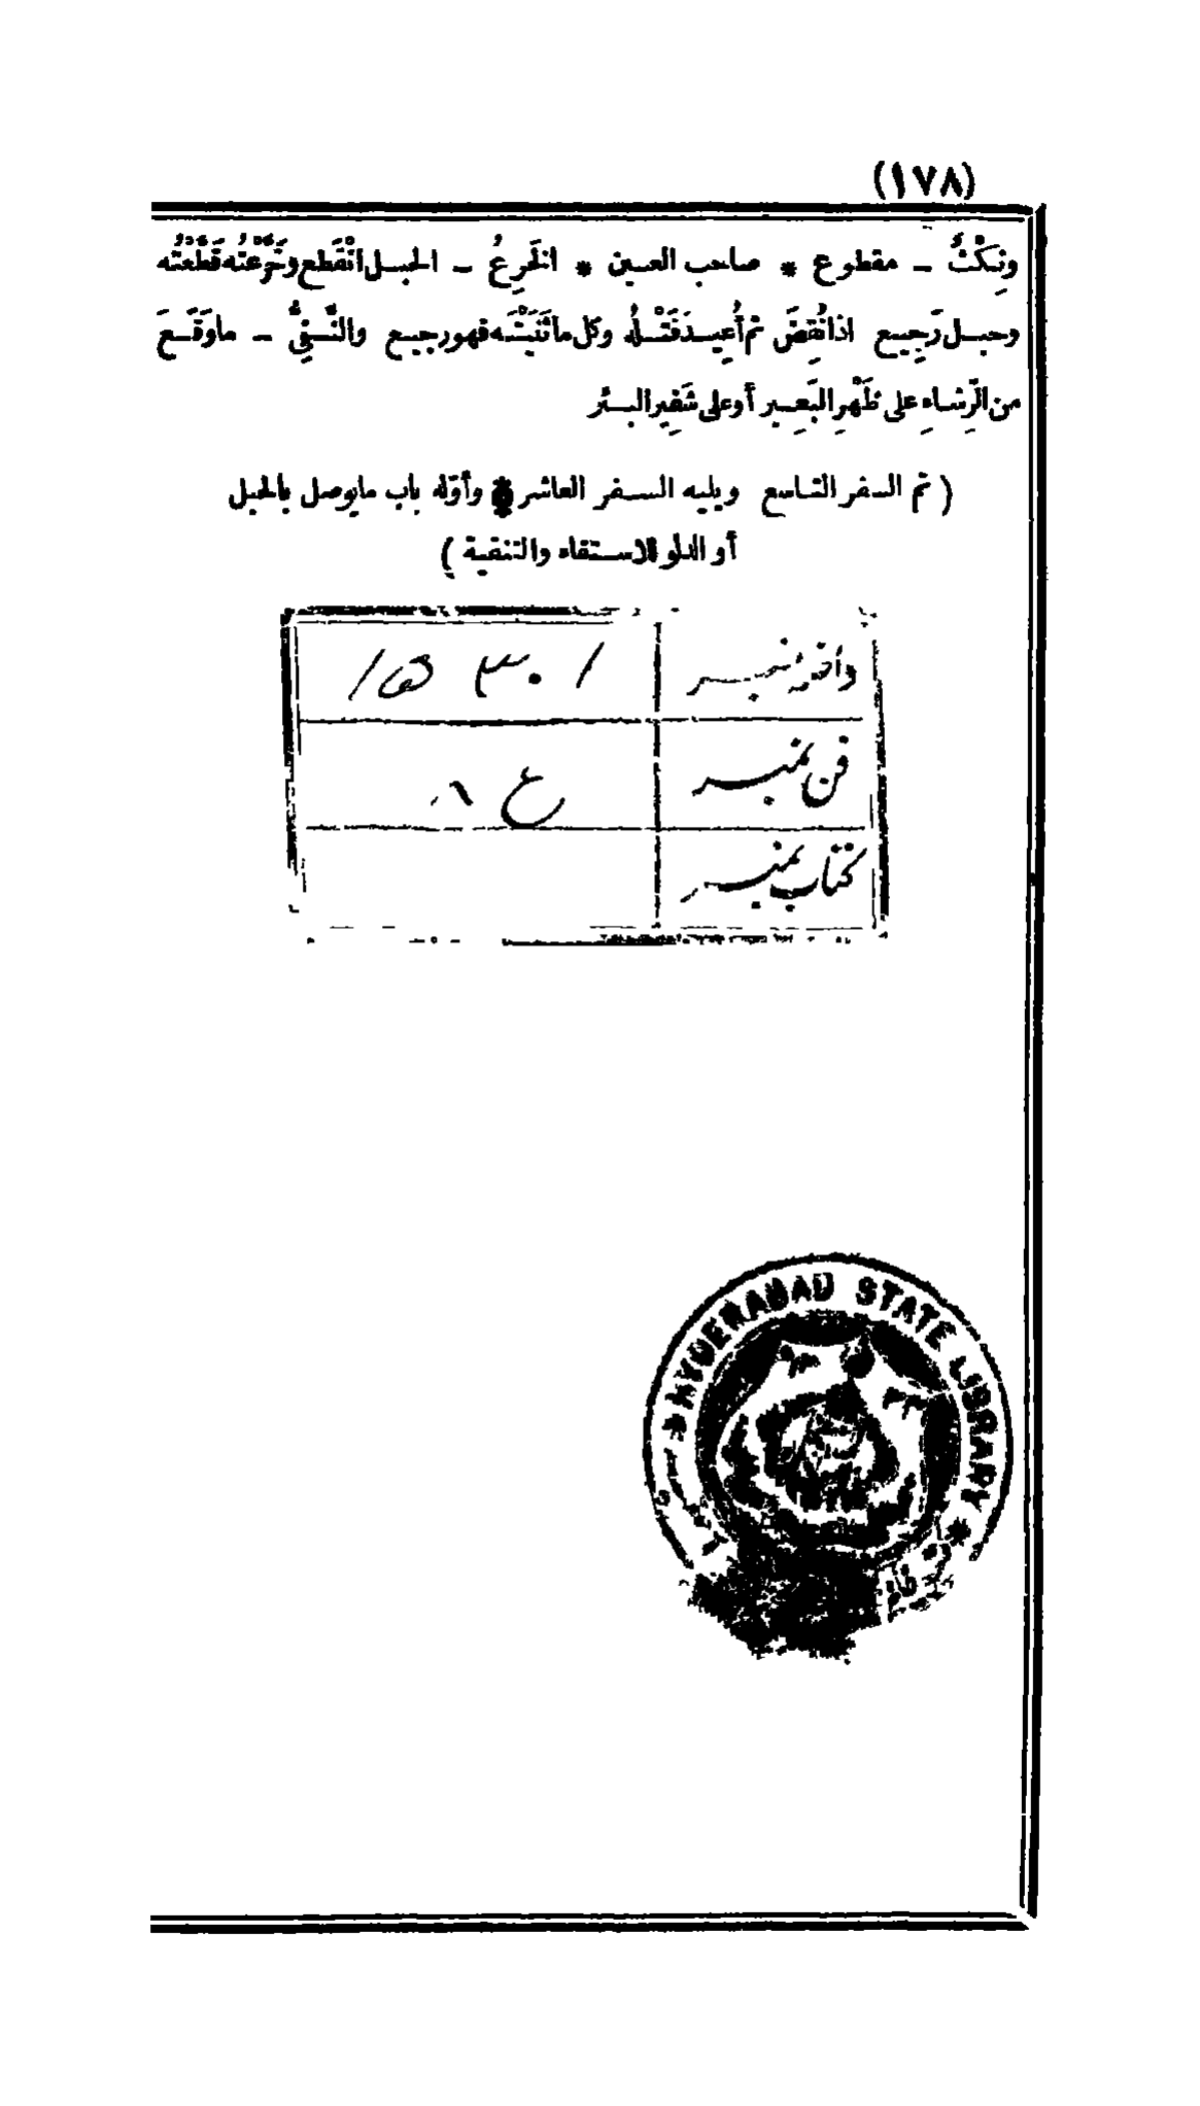 (١٧٨)
ونِكْثٌ ـ مقطوع * صاحب العين * انخَرِعُ ـ الحبل انْقَطع وتَخَرَّعْتُه قَطَّعْتُه
وحبل رَجِيع اذا نُقِضَ ثم أُعِيد فَتْلُه وكل ما ثَنَيْتَه فهو رجيع والنَّفِىُّ ـ ما وَقَع
من الرِّشاءِ على ظَهْرِ البَعِير أو على شَفِير البئر
( تم السفر التاسع ويليه السفر العاشر * وأوّله باب ما يوصل بالحبل
أو الدلو للاستقاء والتنقية )
داخلہ نمبر
فن نمبر
کتاب نمبر
HYDERABAD STATE LIBRARY